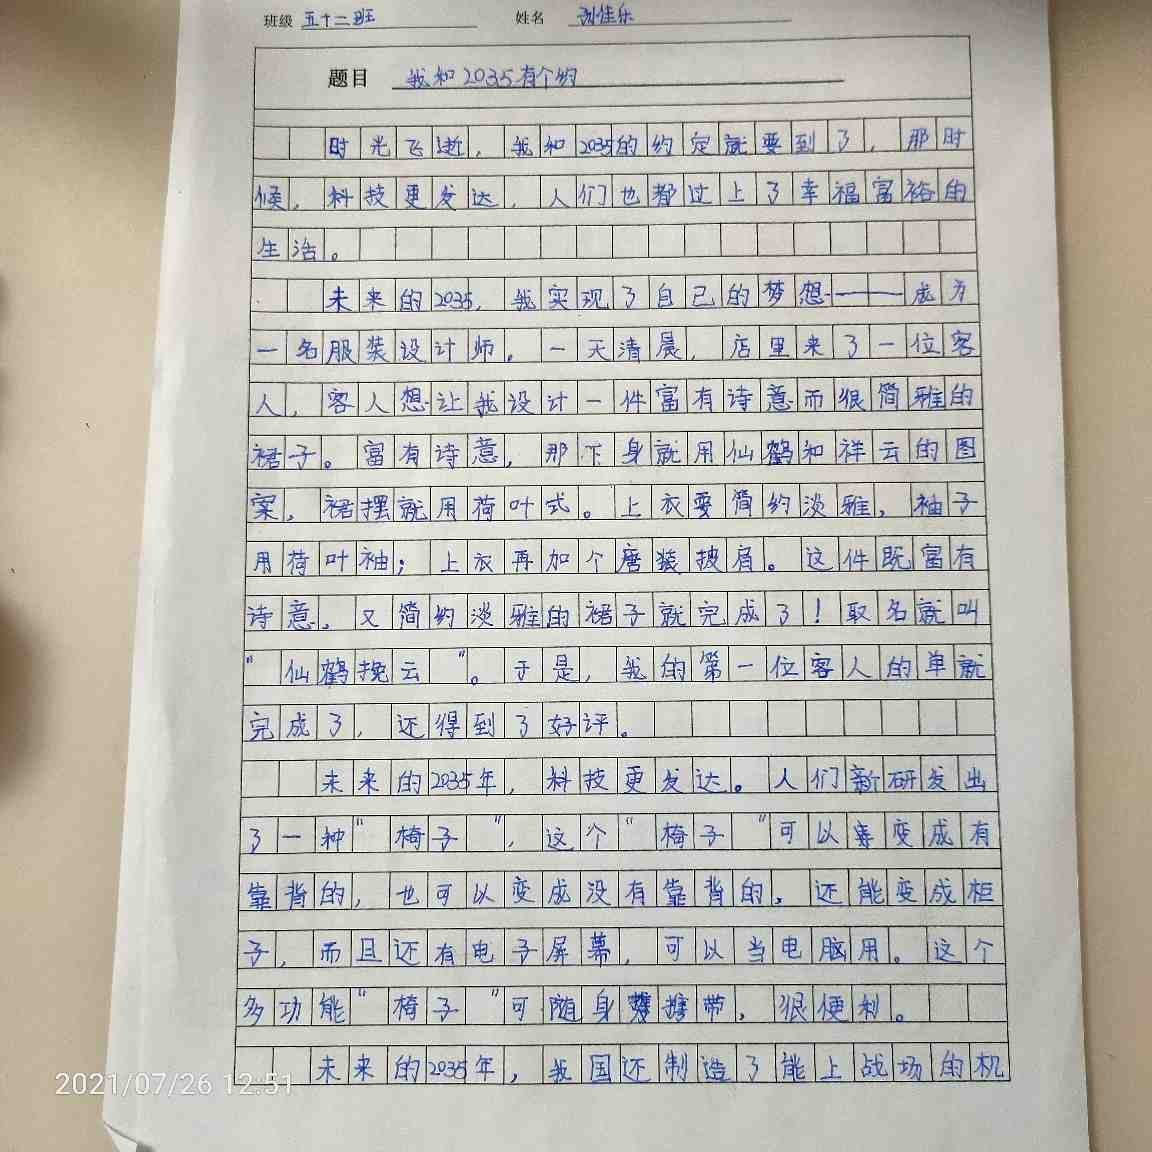 班级 五十二班 姓名 刘佳乐
题目 我和2035有个约
时光飞逝，我和2035的约定就要到了，那时
候，科技更发达，人们也都过上了幸福富裕的
生活。
未来的2035，我实现了自己的梦想——成为
一名服装设计师。一天清晨，店里来了一位客
人，客人想让我设计一件富有诗意而很简雅的
裙子。富有诗意，那下身就用仙鹤和祥云的图
案，裙摆就用荷叶式。上衣要简约淡雅，袖子
用荷叶袖；上衣再加个唐装披肩。这件既富有
诗意，又简约淡雅的裙子就完成了！取名就叫
“仙鹤挽云”。于是，我的第一位客人的单就
完成了，还得到了好评。
未来的2035年，科技更发达。人们新研发出
了一种“椅子”，这个“椅子”可以变成有
靠背的，也可以变成没有靠背的，还能变成柜
子，而且还有电子屏幕，可以当电脑用。这个
多功能“椅子”可随身携带，很便利。
未来的2035年，我国还制造了能上战场的机
2021/07/26 12:51